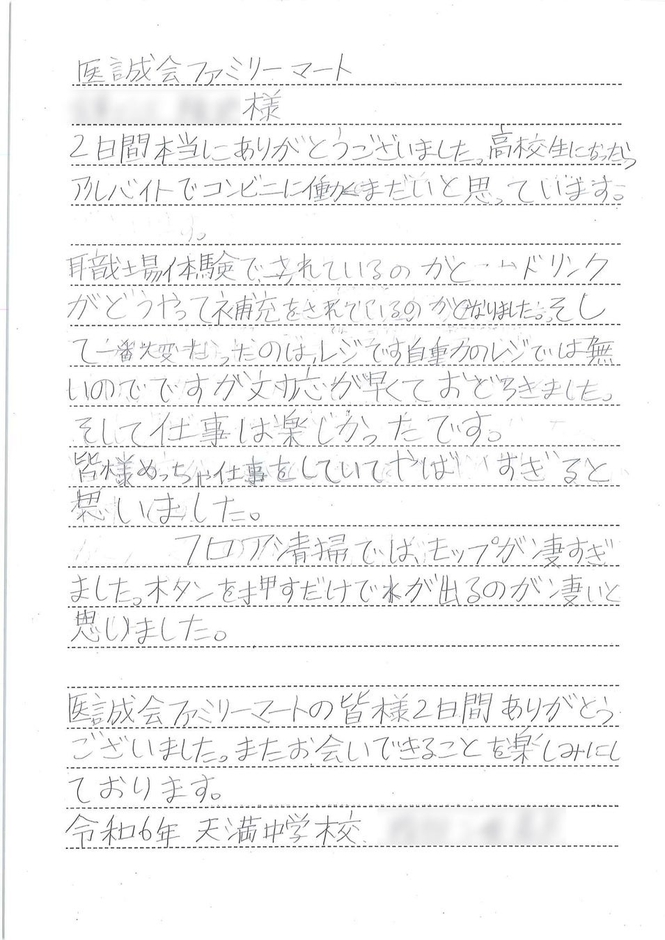 医誠会ファミリーマート
様
2日間本当にありがとうございました。高校生になったら
アルバイトでコンビニに働くまだいと思っています。
職場体験で、されているのかと ドリンク
がどうやって補充をされているのかとなりました。そし
て一番大変だったのは、レジです自動のレジでは無
いのでですが対応が早くておどろきました。
そして仕事は楽しかったです。
皆様めっちゃ仕事をしていてやば すぎると
思いました。
フロア清掃では、モップが凄すぎ
ました。ボタンを押すだけで水が出るのが凄いと
思いました。
医誠会ファミリーマートの皆様2日間ありがとう
ございました。またお会いできることを楽しみにし
ております。
令和6年 天満中学校